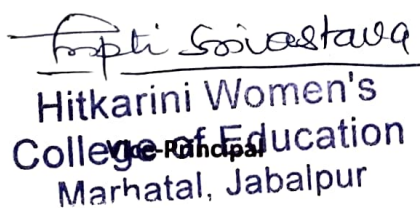 Tripti Srivastava
Hitkarini Women's
College of Education
Vice-Principal
Marhatal, Jabalpur